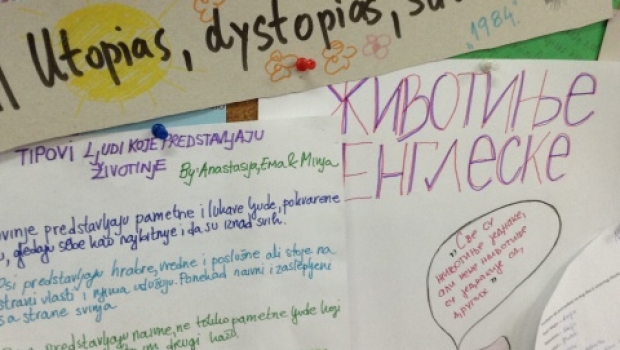 Utopias, dystopias,
"1984."
TIPOVI LJUDI KOJE PREDSTAVLJAJU
ŽIVOTINJE By: Anastasija, Ema & Minja
predstavljaju pametne i lukave ljude, pokvarene
gledaju sebe kao najbitnije i da su iznad svih.
Psi predstavljaju hrabre, vredne i poslušne ali stoje na
strani vlasti i njima udišuju. Ponekad naivni i zaslepljeni
sa strane svinja
predstavljaju naivne, ne toliko pametne ljude koji
drugi kažu.
ЖИВОТИЊЕ
ЕНГЛЕСКЕ
„Све су
животиње једнаке,
али неке животиње
су једнакије од
других"